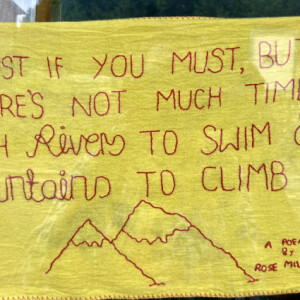 ST IF YOU MUST, BUT
ERE'S NOT MUCH TIME
H Rivers TO SWIM
untains TO CLIMB
A POEM
BY
ROSE MIL